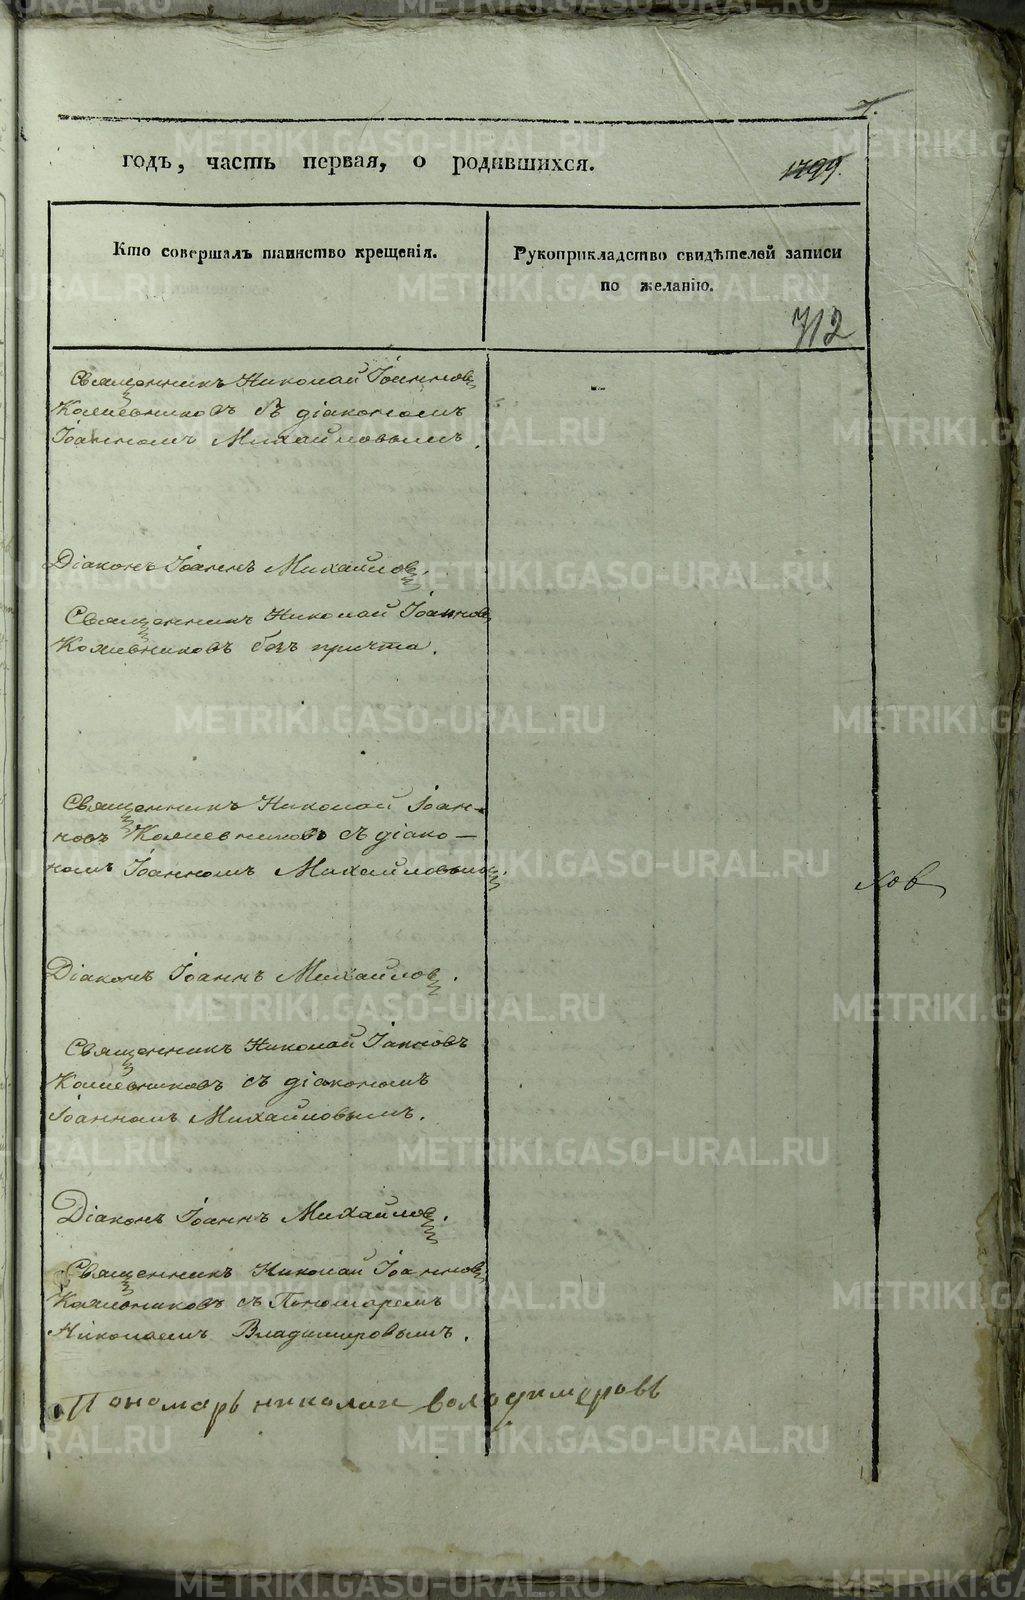 7.
годъ, часть первая, о родившихся.
1799.
Кто совершалъ таинство крещенія.
Рукоприкладство свидѣтелей записи
по желанію.
712
Священникъ Николай Іоаннов
с діакономъ
Іоанномъ Михайловымъ.
Діаконъ Іоаннъ Михайлов.
Священникъ Николай Іоаннов
безъ причта.
Священникъ Николай Іоан-
новъ съ діако-
номъ Іоанномъ Михайловымъ.
хов
Діаконъ Іоаннъ Михайлов.
Священникъ Николай
съ діакономъ
Іоанномъ Михайловымъ.
Діаконъ Іоаннъ Михайлов.
Священникъ Николай Іоаннов
съ Пономаремъ
Николаемъ Владимировымъ.
Пономарь николаи володимеровъ
METRIKI.GASO-URAL.RU